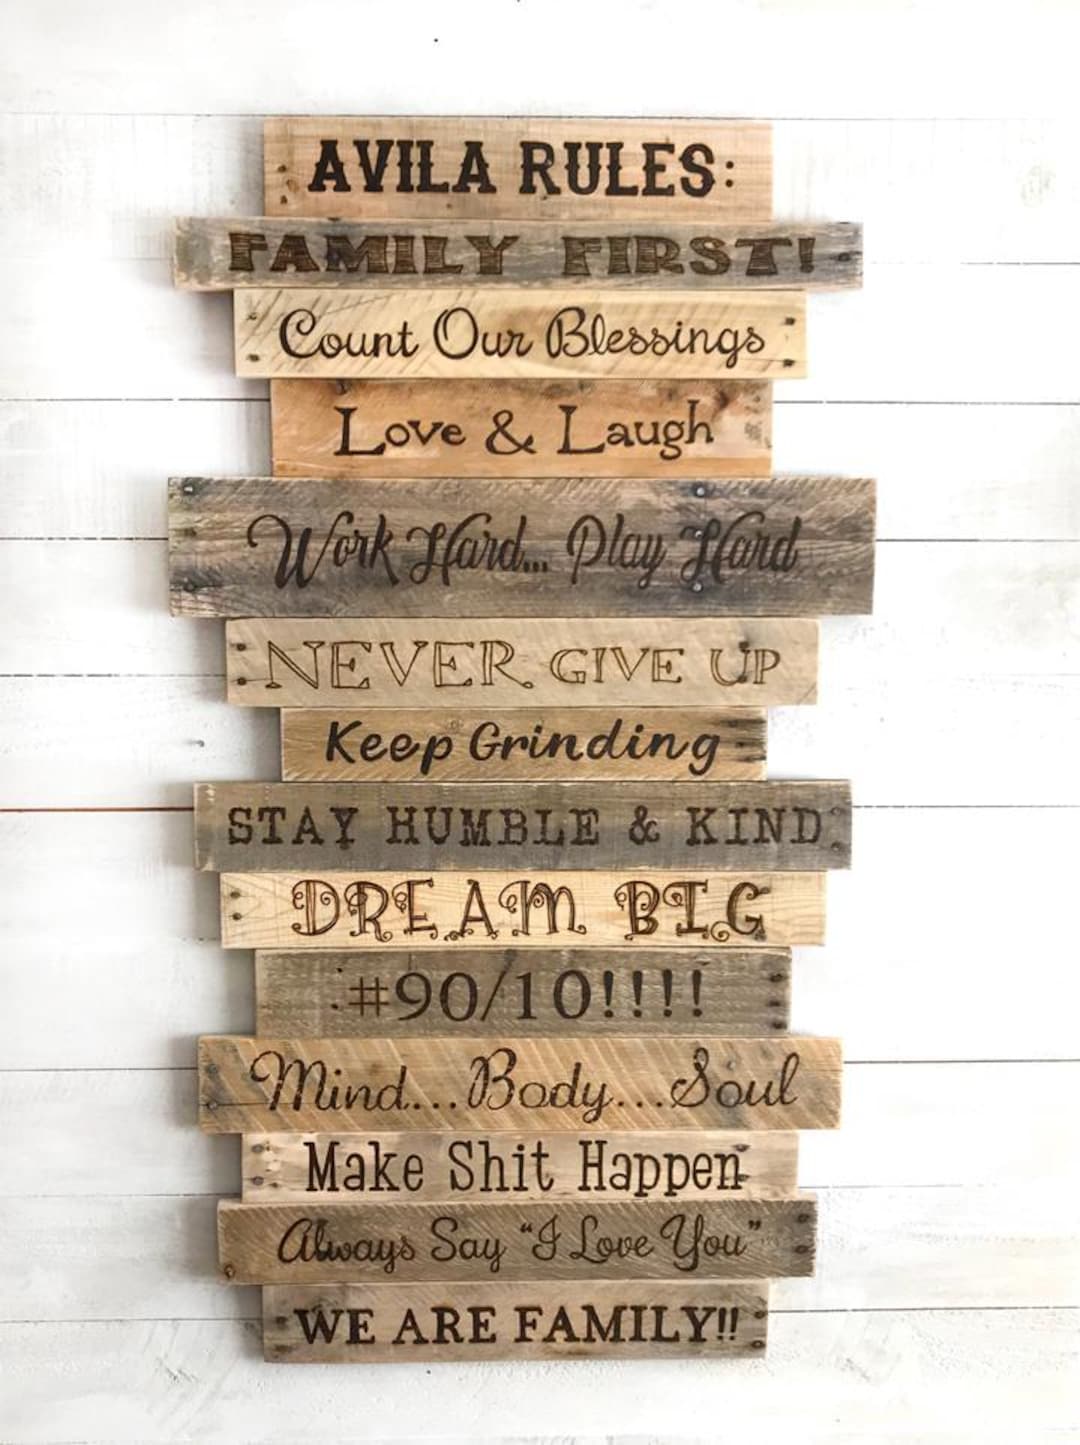 AVILA RULES:
FAMILY FIRST!
Count Our Blessings
Love & Laugh
Work Hard... Play Hard
NEVER GIVE UP
Keep Grinding
STAY HUMBLE & KIND
DREAM BIG
#90/10!!!!
Mind...Body...Soul
Make Shit Happen
Always Say "I Love You"
WE ARE FAMILY!!